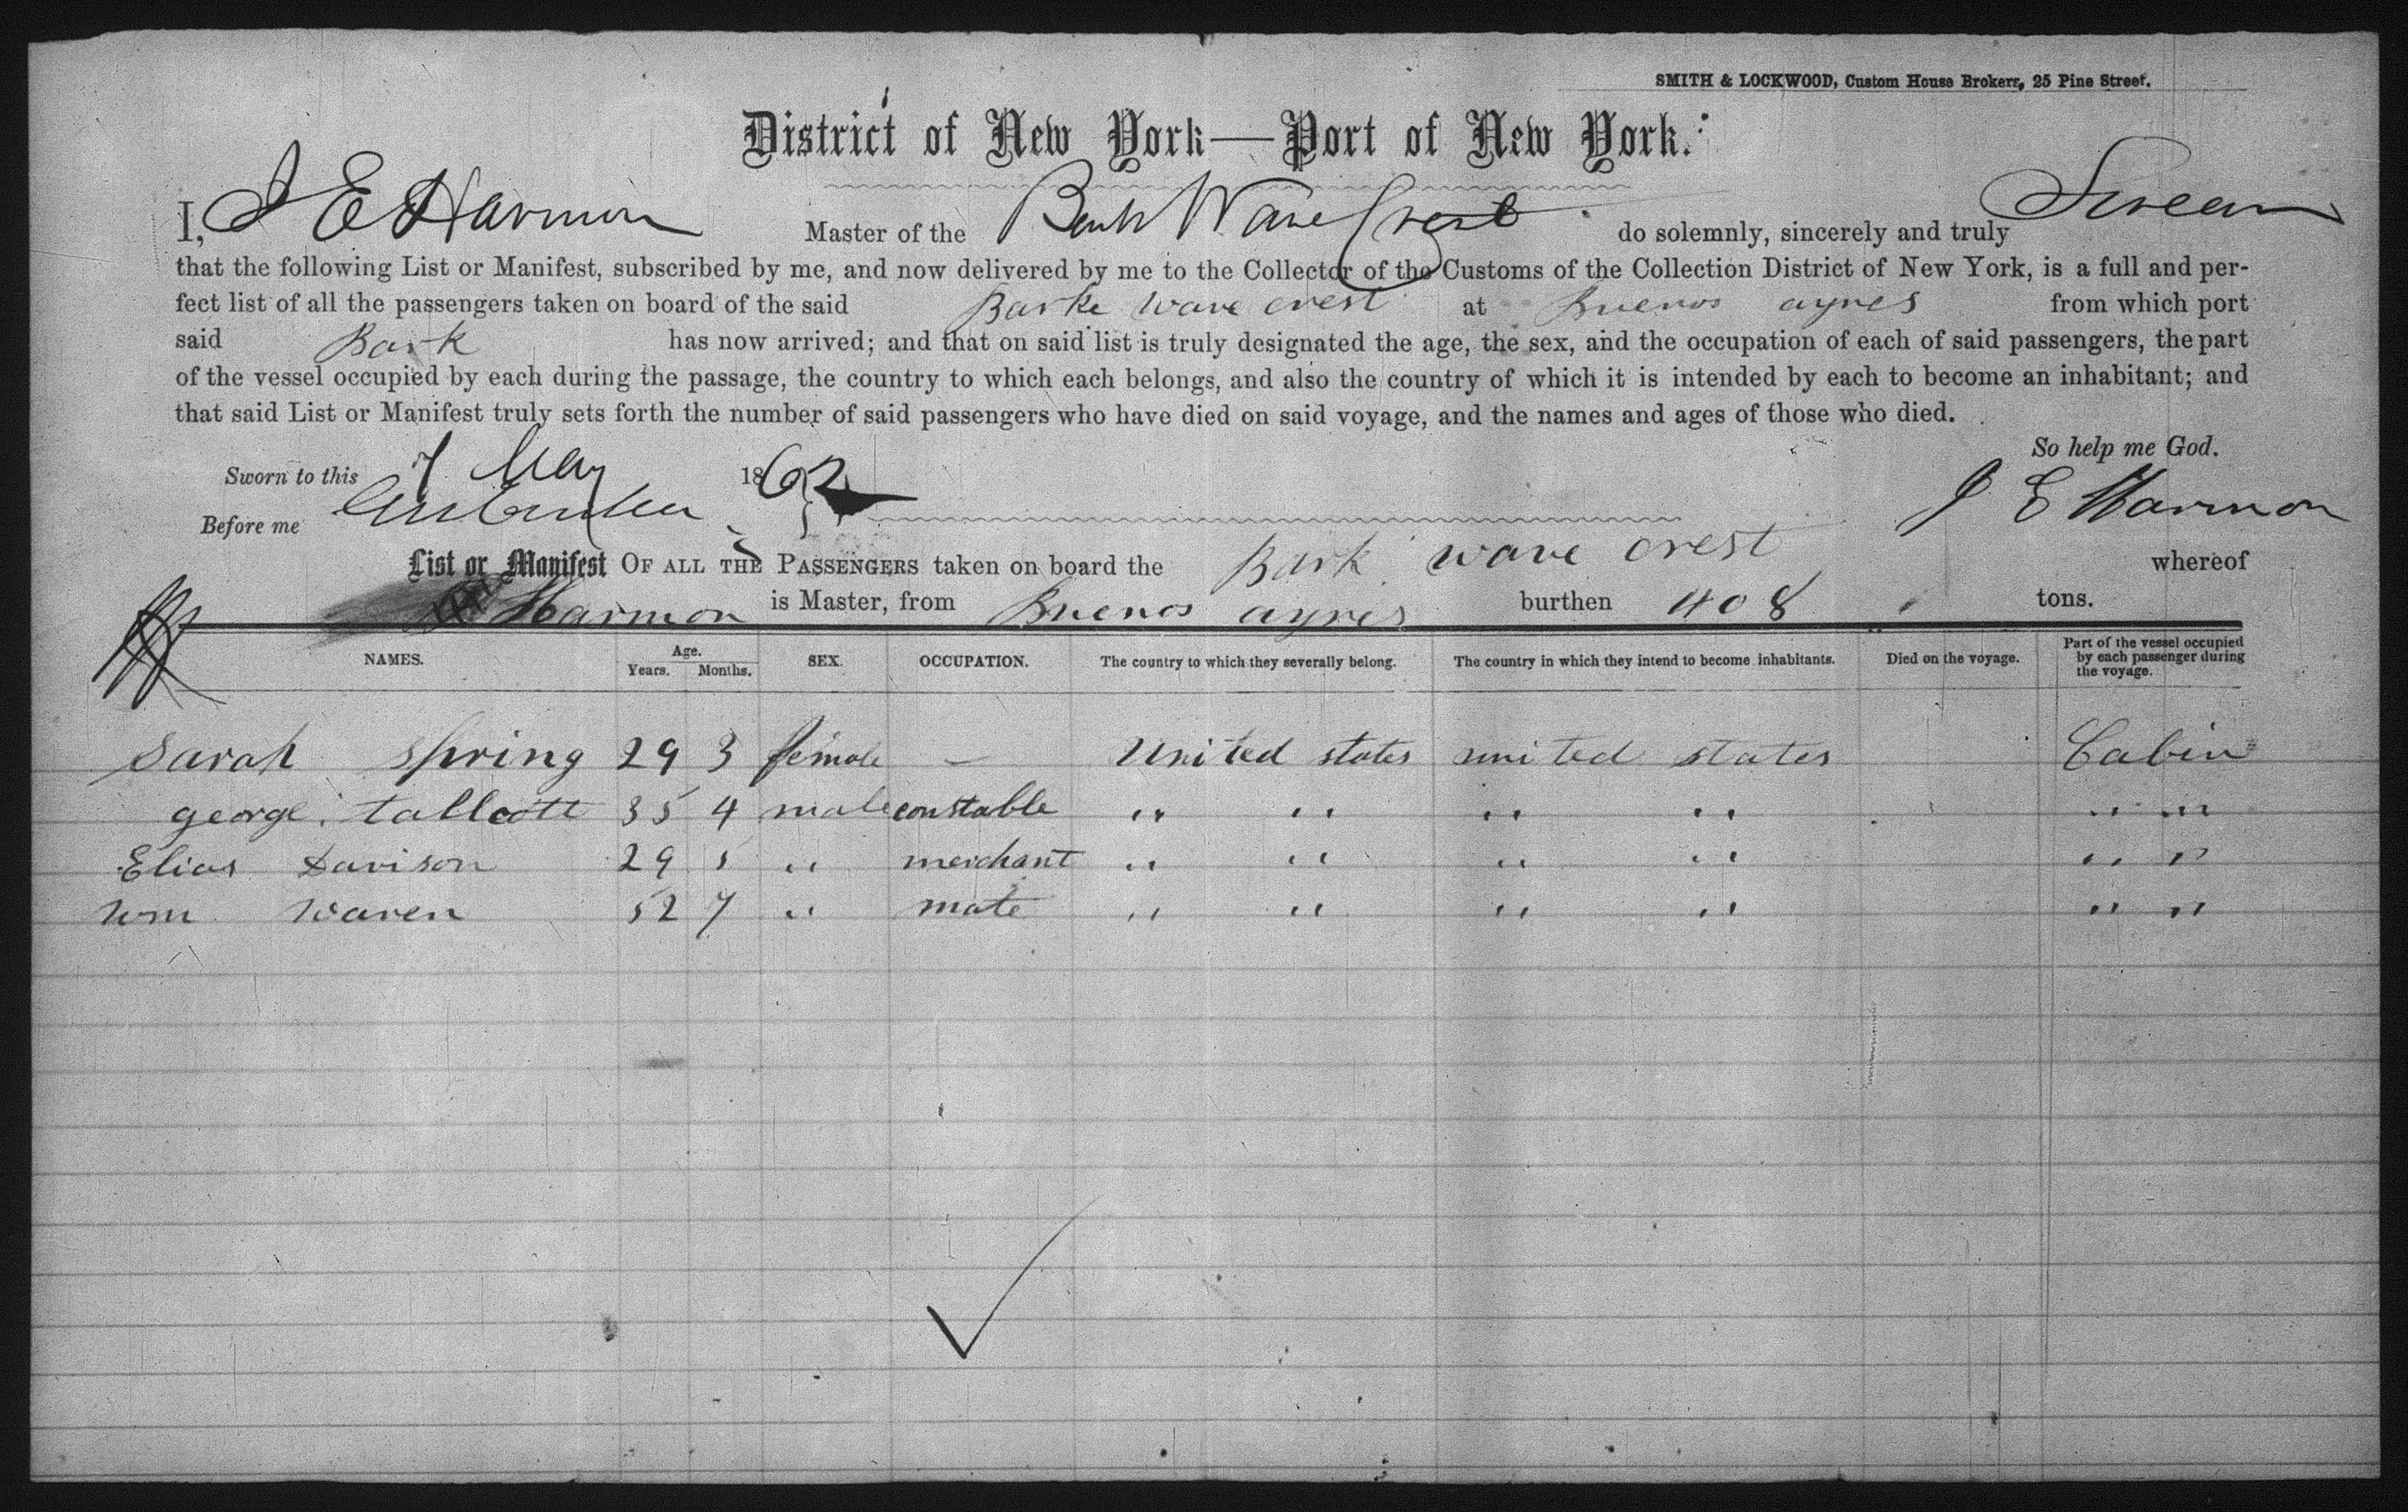 SMITH & LOCKWOOD, Custom House Brokers, 25 Pine Street.
District of New York—Port of New York.
I, J E Harmon Master of the Bark Wave Crest do solemnly, sincerely and truly Swear
that the following List or Manifest, subscribed by me, and now delivered by me to the Collector of the Customs of the Collection District of New York, is a full and per-
fect list of all the passengers taken on board of the said Barke wave crest at Buenos ayres from which port
said Bark has now arrived; and that on said list is truly designated the age, the sex, and the occupation of each of said passengers, the part
of the vessel occupied by each during the passage, the country to which each belongs, and also the country of which it is intended by each to become an inhabitant; and
that said List or Manifest truly sets forth the number of said passengers who have died on said voyage, and the names and ages of those who died.
So help me God.
Sworn to this 7 May 1862
J E Harmon
Before me
List or Manifest OF ALL THE PASSENGERS taken on board the Bark wave crest whereof
Harmon is Master, from Buenos ayres burthen 408 tons.
NAMES. Age. Years. Months. SEX. OCCUPATION. The country to which they severally belong. The country in which they intend to become inhabitants. Died on the voyage. Part of the vessel occupied by each passenger during the voyage.
Sarah spring 29 3 female — United states united states Cabin
george tallcott 35 4 male constable " " " " " "
Elias Davison 29 5 " merchant " " " " " "
Wm Waren 52 7 " mate " " " " " "